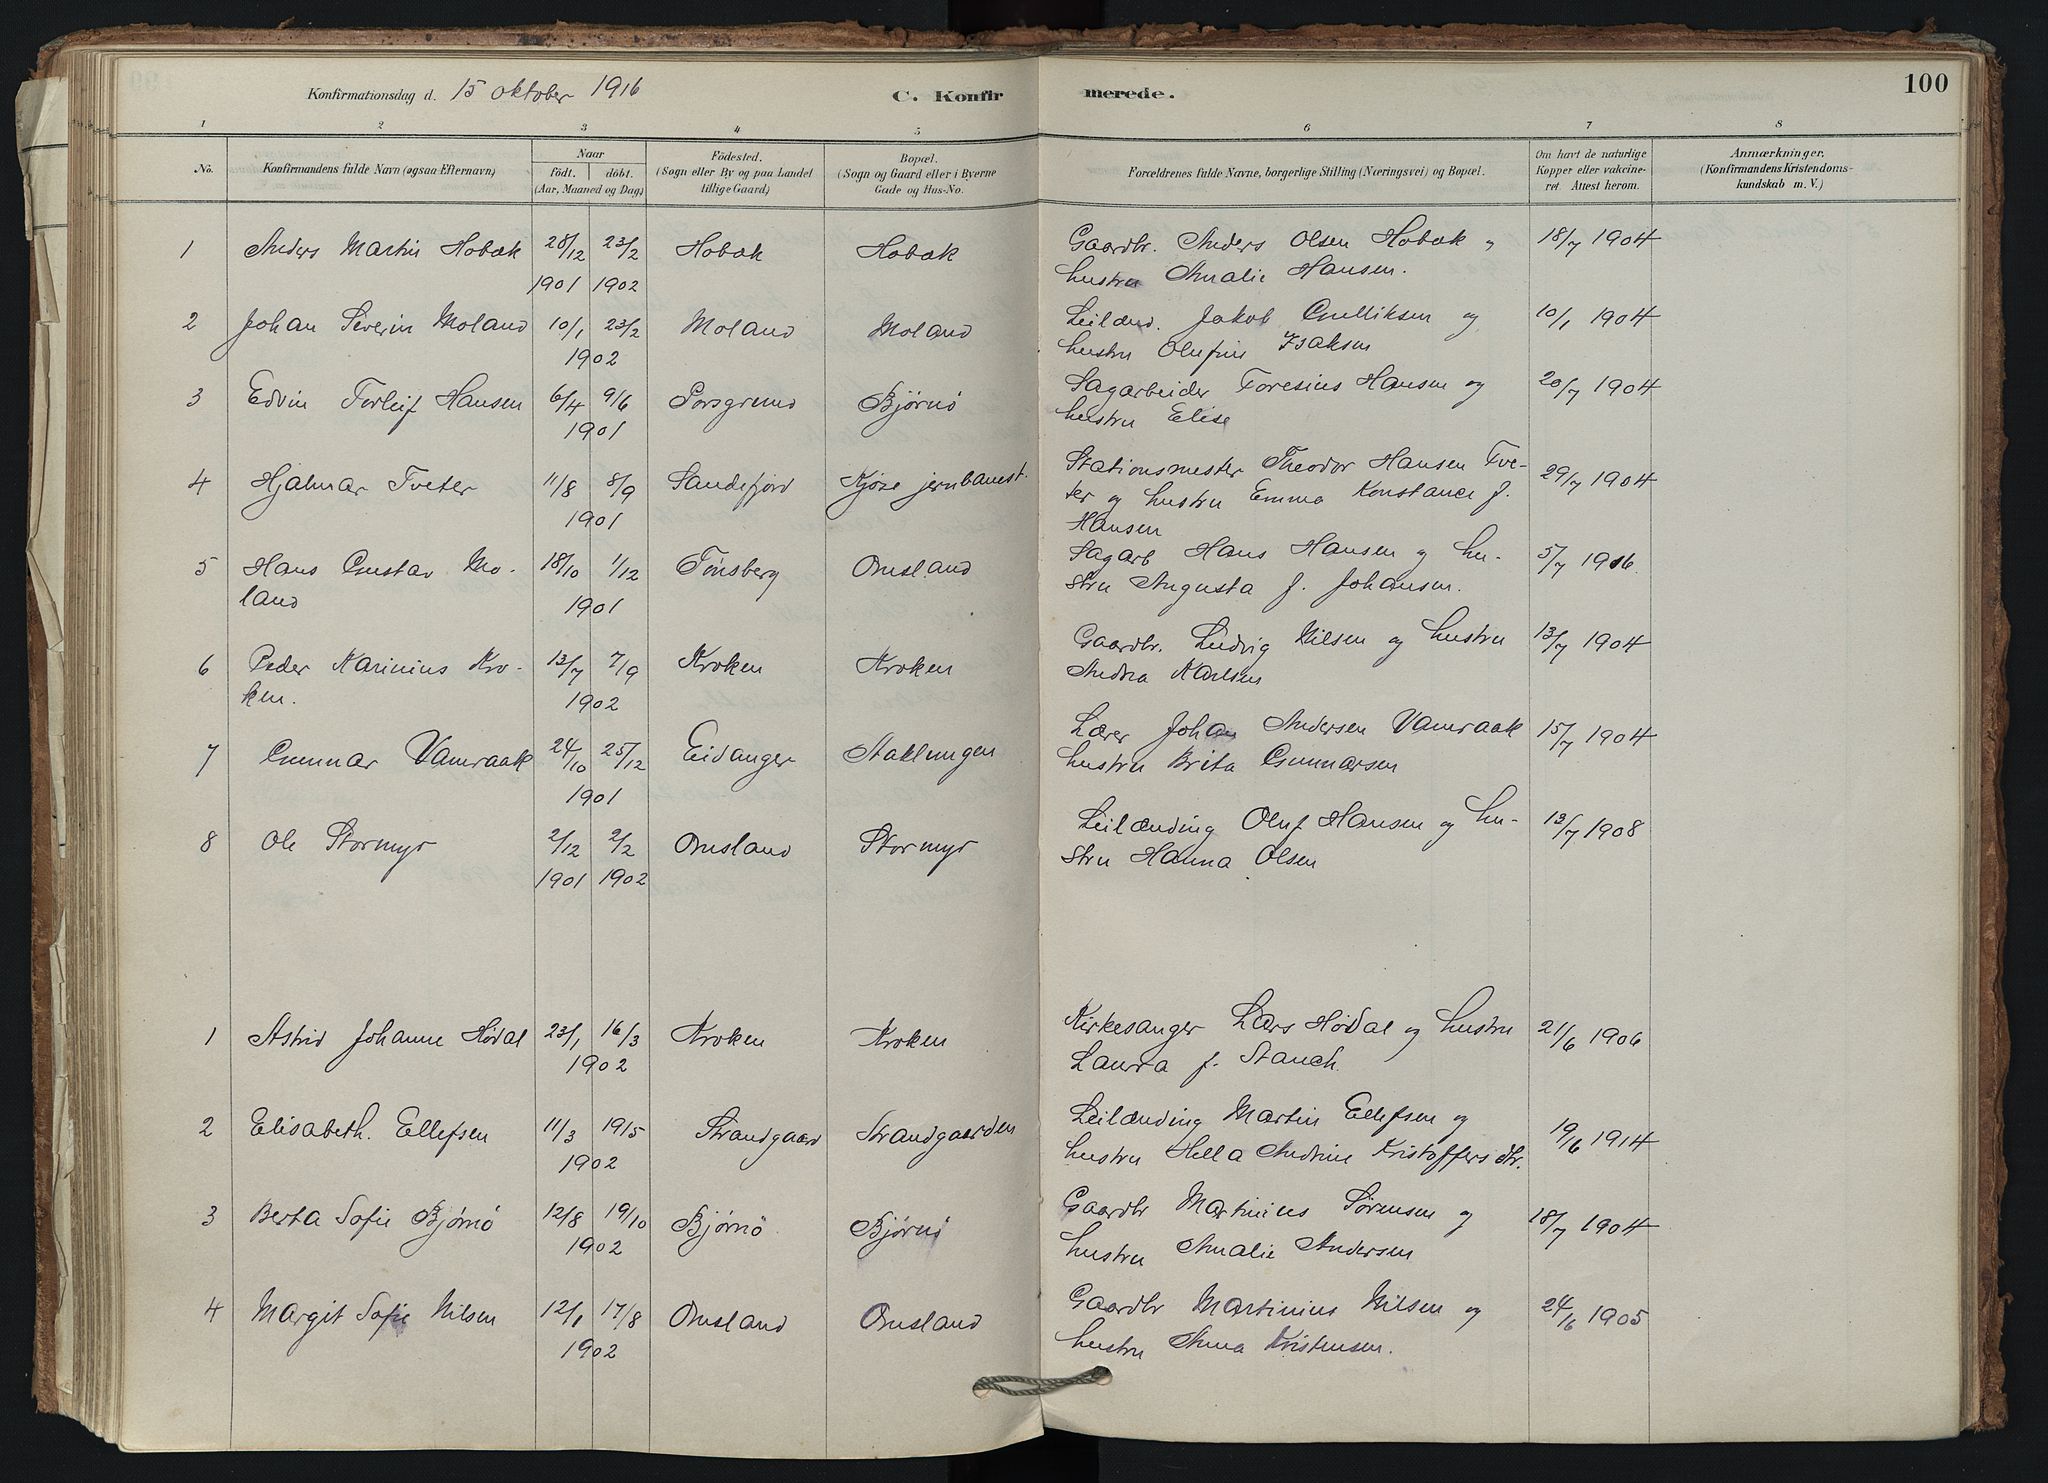 Konfirmationsdag d. 15 oktober 1916 C. Konfirmerede. 100
1 2 3 4 5 6 7 8
No. Konfirmandens fulde Navn (ogsaa Efternavn) Naar født. døbt. (Aar, Maaned og Dag) Fødested. (Sogn eller By og paa Landet tillige Gaard) Bopæl. (Sogn og Gaard eller i Byerne Gade og Hus-No. Forældrenes fulde Navne, borgerlige Stilling (Næringsvei) og Bopæl. Om havt de naturlige Kopper eller vakcineret. Attest herom. Anmærkninger. (Konfirmandens Kristendomskundskab m. V.)
1 Anders Martin Hobæk 28/12 23/2 Hobæk Hobæk Gaardbr. Anders Olsen Hobæk og 18/7 1904
1901 1902 hustru Amalie Hansen.
2 Johan Severin Moland 10/1 23/2 Moland Moland Leilænd. Jakob Gulliksen og 10/1 1904
1902 hustru Olufine Isaksen
3 Edvin Torleif Hansen 6/4 9/6 Porsgrund Bjørnö Sagarbeider Toresius Hansen og 20/7 1904
1901 hustru Elise
4 Hjalmar Tveter 11/8 8/9 Sandefjord Kjöse jernbanest. Stationsmester Theodor Hansen Tve- 29/7 1904
1901 ter og hustru Emma Konstance f.
Hansen
5 Hans Gustav Mo- 18/10 1/12 Tönsberg Omsland Sagarb Hans Hansen og hu- 5/7 1916.
land 1901 stru Augusta f. Johansen.
6 Peder Karinius Kro- 13/7 7/9 Kroken Kroken Gaardbr. Ludvig Nilsen og hustru 13/7 1904
ken. 1902 Andrea Karlsen
7 Gunnar Vamraak 24/10 25/12 Eidanger Staklungen Lærer Johan Andersen Vamraak 15/7 1904
1901 hustru Brita Gunnarsen
8 Ole Stormyr 2/12 2/2 Omsland Stormyr Leilænding Oluf Hansen og hu- 13/7 1908
1901 1902 stru Hanna Olsen
1 Astrid Johanne Hödal 23/1 16/3 Kroken Kroken Kirkesanger Lars Hödal og hustru 21/6 1906
1902 Laura f. Stauch.
2 Elisabeth. Ellefsen 11/3 19/5 Strandgaard Strandgaarden Leilænding Martin Ellefsen og 19/6 1914
1902 hustru Hella Andrine Kristoffersdtr.
3 Berta Sofie Bjørnö 12/8 19/10 Bjørnö Bjørnö Gaardbr Martinius Sörensen og 18/7 1904
1902 hustru Amalie Andersen
4 Margit Sofie Nilsen 12/1 17/8 Omsland Omsland Gaardbr Martinius Nilsen og 24/6 1905
1902 hustru Anna Kristensen.